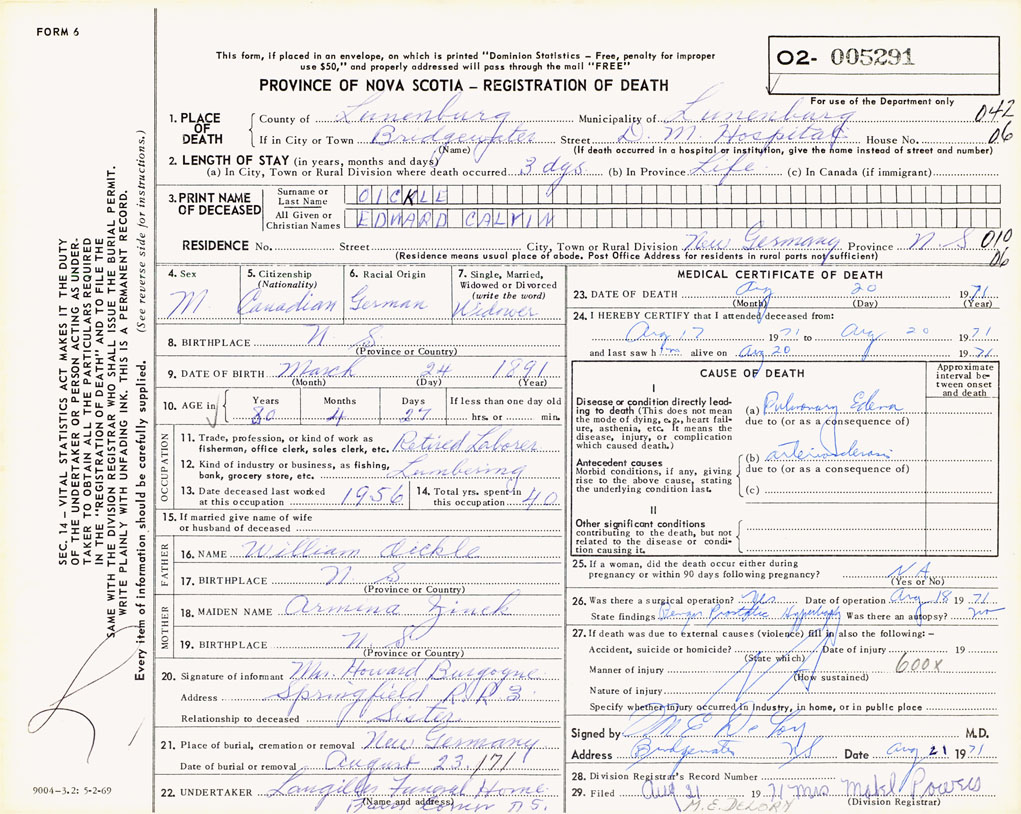 FORM 6
This form, if placed in an envelope, on which is printed "Dominion Statistics – Free, penalty for improper
use $50," and properly addressed will pass through the mail "FREE"
02- 005291
PROVINCE OF NOVA SCOTIA – REGISTRATION OF DEATH
For use of the Department only
1. PLACE OF DEATH
County of Lunenburg Municipality of Lunenburg 042
If in City or Town Bridgewater Street D. M. Hospital House No. 06
(Name) (If death occurred in a hospital or institution, give the name instead of street and number)
2. LENGTH OF STAY (in years, months and days)
(a) In City, Town or Rural Division where death occurred 3 dys (b) In Province Life (c) In Canada (if immigrant)
3. PRINT NAME OF DECEASED
Surname or Last Name OICKLE
All Given or Christian Names EDWARD CALVIN
RESIDENCE No. Street City, Town or Rural Division New Germany Province N S 010
(Residence means usual place of abode. Post Office Address for residents in rural parts not sufficient) 06
4. Sex M
5. Citizenship (Nationality) Canadian
6. Racial Origin German
7. Single, Married, Widowed or Divorced (write the word) Widower
8. BIRTHPLACE N. S.
(Province or Country)
9. DATE OF BIRTH March 24 1891
(Month) (Day) (Year)
10. AGE in Years Months Days If less than one day old
80 4 27 hrs. or min.
OCCUPATION
11. Trade, profession, or kind of work as fisherman, office clerk, sales clerk, etc. Retired Laborer
12. Kind of industry or business, as fishing, bank, grocery store, etc. Lumbering
13. Date deceased last worked at this occupation 1956
14. Total yrs. spent in this occupation 40
15. If married give name of wife or husband of deceased
FATHER
16. NAME William Oickle
17. BIRTHPLACE N S
(Province or Country)
MOTHER
18. MAIDEN NAME Armina Zinck
19. BIRTHPLACE N. S
(Province or Country)
20. Signature of informant Mrs. Howard Burgoyne
Address Springfield R R 3
Relationship to deceased Sister
21. Place of burial, cremation or removal New Germany
Date of burial or removal August 23/71
22. UNDERTAKER Langilles Funeral Home
(Name and address) Corner N.S.
MEDICAL CERTIFICATE OF DEATH
23. DATE OF DEATH Aug 20 1971
(Month) (Day) (Year)
24. I HEREBY CERTIFY that I attended deceased from:
Aug 17 1971 to Aug 20 1971
and last saw him alive on Aug 20 1971
CAUSE OF DEATH
Approximate interval between onset and death
I
Disease or condition directly leading to death (This does not mean the mode of dying, e.g., heart failure, asthenia, etc. It means the disease, injury, or complication which caused death.)
(a) Pulmonary Edema
due to (or as a consequence of)
Antecedent causes
Morbid conditions, if any, giving rise to the above cause, stating the underlying condition last.
(b)
due to (or as a consequence of)
(c)
II
Other significant conditions contributing to the death, but not related to the disease or condition causing it.
25. If a woman, did the death occur either during pregnancy or within 90 days following pregnancy? N A
(Yes or No)
26. Was there a surgical operation? Yes Date of operation Aug 18 1971
State findings Benign Prostatic Was there an autopsy? no
27. If death was due to external causes (violence) fill in also the following: –
Accident, suicide or homicide? Date of injury 19
(State which)
Manner of injury 600X
(How sustained)
Nature of injury
Specify whether injury occurred in Industry, in home, or in public place
Signed by M E De Lory M.D.
Address Bridgewater NS Date Aug 21 1971
28. Division Registrar's Record Number
29. Filed Aug 21 1971 Mrs Mabel Powers
M.E. DELORY (Division Registrar)
SEC. 14 – VITAL STATISTICS ACT MAKES IT THE DUTY
OF THE UNDERTAKER OR PERSON ACTING AS UNDER-
TAKER TO OBTAIN ALL THE PARTICULARS REQUIRED
IN THE "REGISTRATION OF DEATH" AND TO FILE THE
SAME WITH THE DIVISION REGISTRAR WHO SHALL ISSUE THE BURIAL PERMIT.
WRITE PLAINLY WITH UNFADING INK. THIS IS A PERMANENT RECORD.
Every item of information should be carefully supplied. (See reverse side for instructions.)
9004-3.2: 5-2-69